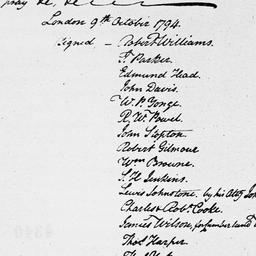 pray &c. &c.
London 9th October 1794.
Signed - Robert Williams.
J. Parker
Edmund Head.
John Davis.
W. P. Gonge.
R. W. Powel.
John Slopton.
Robert Gilmour
Wm Browne.
S. H. Jenkins.
Lewis Johnstone, by his Atty Jon
Charles Robt. Cooke.
James Wilson, for
Thos. Harper